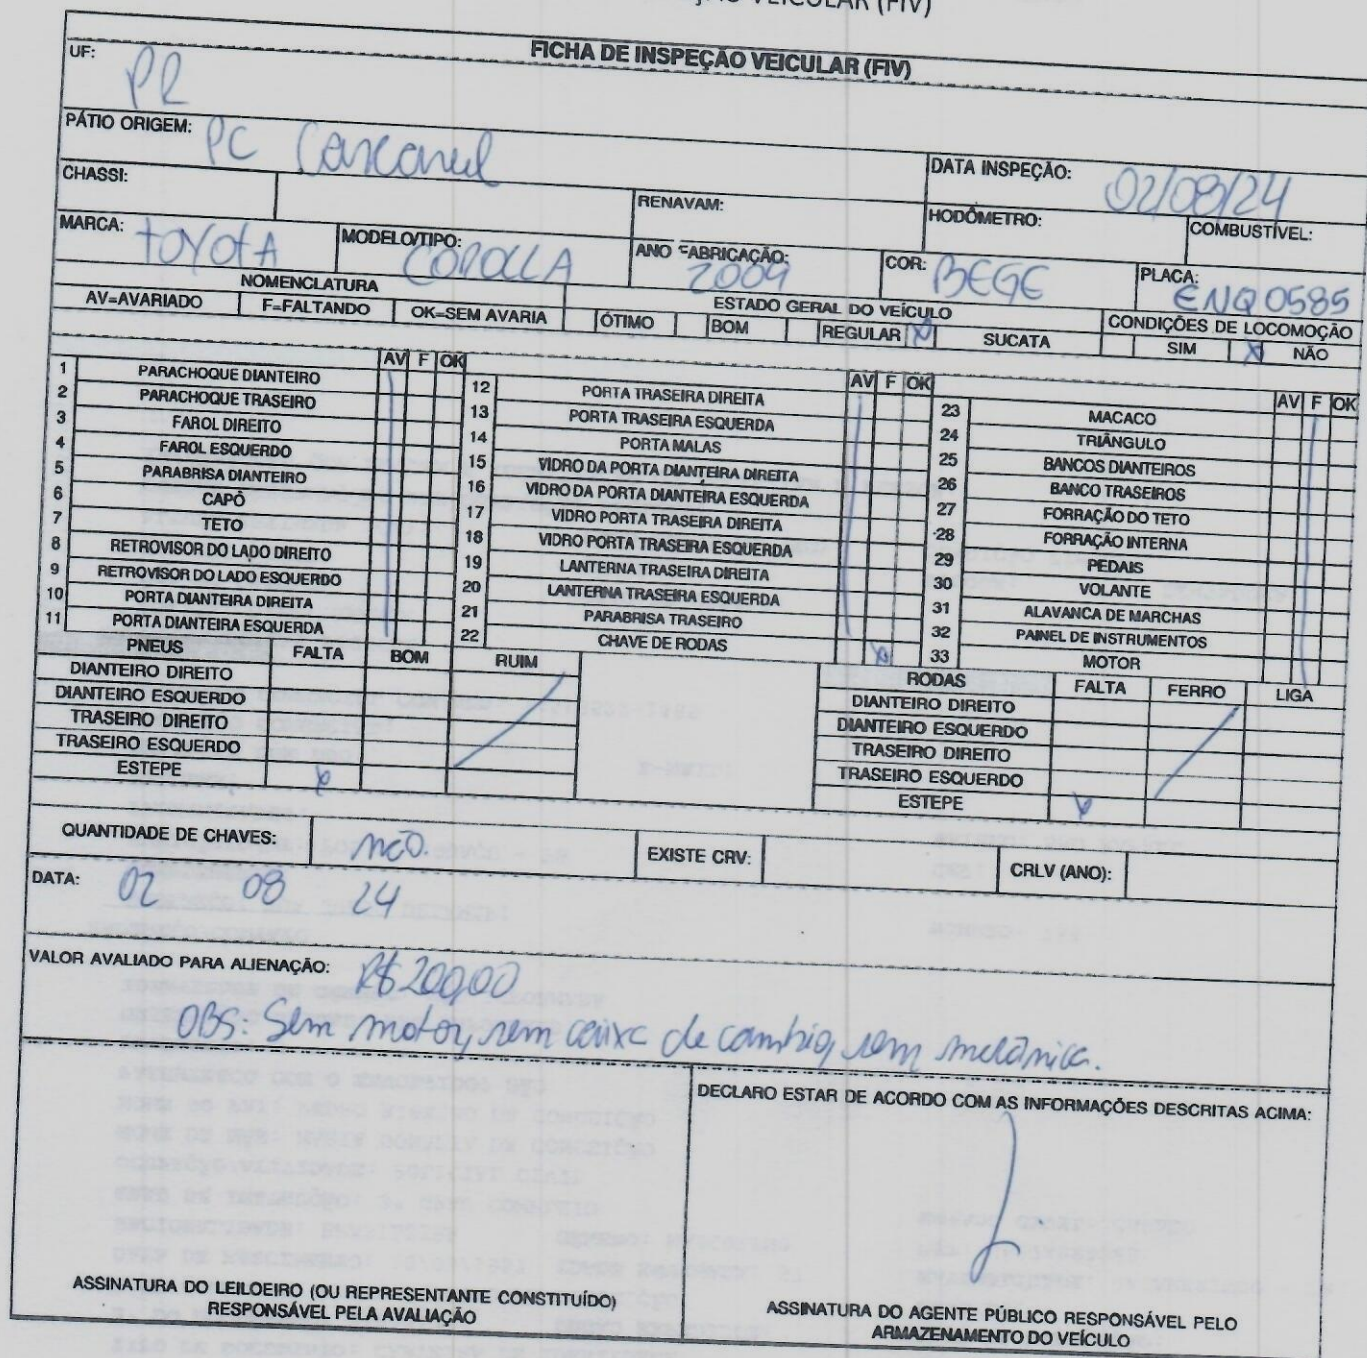 ÇÃO VEICULAR (FIV)
FICHA DE INSPEÇÃO VEICULAR (FIV)
UF: PR
PÁTIO ORIGEM: PC Cascavel
DATA INSPEÇÃO: 02/08/24
CHASSI:
RENAVAM:
HODÔMETRO:
COMBUSTÍVEL:
MARCA: TOYOTA
MODELO/TIPO: COROLLA
ANO FABRICAÇÃO: 2009
COR: BEGE
PLACA: ENQ0585
NOMENCLATURA
ESTADO GERAL DO VEÍCULO
CONDIÇÕES DE LOCOMOÇÃO
AV=AVARIADO F=FALTANDO OK=SEM AVARIA ÓTIMO BOM REGULAR X SUCATA SIM X NÃO
AV F OK
1 PARACHOQUE DIANTEIRO
2 PARACHOQUE TRASEIRO
3 FAROL DIREITO
4 FAROL ESQUERDO
5 PARABRISA DIANTEIRO
6 CAPÔ
7 TETO
8 RETROVISOR DO LADO DIREITO
9 RETROVISOR DO LADO ESQUERDO
10 PORTA DIANTEIRA DIREITA
11 PORTA DIANTEIRA ESQUERDA
AV F OK
12 PORTA TRASEIRA DIREITA
13 PORTA TRASEIRA ESQUERDA
14 PORTA MALAS
15 VIDRO DA PORTA DIANTEIRA DIREITA
16 VIDRO DA PORTA DIANTEIRA ESQUERDA
17 VIDRO PORTA TRASEIRA DIREITA
18 VIDRO PORTA TRASEIRA ESQUERDA
19 LANTERNA TRASEIRA DIREITA
20 LANTERNA TRASEIRA ESQUERDA
21 PARABRISA TRASEIRO
22 CHAVE DE RODAS X
AV F OK
23 MACACO
24 TRIÂNGULO
25 BANCOS DIANTEIROS
26 BANCO TRASEIROS
27 FORRAÇÃO DO TETO
28 FORRAÇÃO INTERNA
29 PEDAIS
30 VOLANTE
31 ALAVANCA DE MARCHAS
32 PAINEL DE INSTRUMENTOS
33 MOTOR
PNEUS FALTA BOM RUIM
DIANTEIRO DIREITO
DIANTEIRO ESQUERDO
TRASEIRO DIREITO
TRASEIRO ESQUERDO
ESTEPE X
RODAS FALTA FERRO LIGA
DIANTEIRO DIREITO
DIANTEIRO ESQUERDO
TRASEIRO DIREITO
TRASEIRO ESQUERDO
ESTEPE X
QUANTIDADE DE CHAVES: não.
EXISTE CRV:
CRLV (ANO):
DATA: 02 08 24
VALOR AVALIADO PARA ALIENAÇÃO: R$ 200,00
OBS: Sem motor, sem caixa de cambio, sem mecânica.
DECLARO ESTAR DE ACORDO COM AS INFORMAÇÕES DESCRITAS ACIMA:
ASSINATURA DO LEILOEIRO (OU REPRESENTANTE CONSTITUÍDO)
RESPONSÁVEL PELA AVALIAÇÃO
ASSINATURA DO AGENTE PÚBLICO RESPONSÁVEL PELO
ARMAZENAMENTO DO VEÍCULO